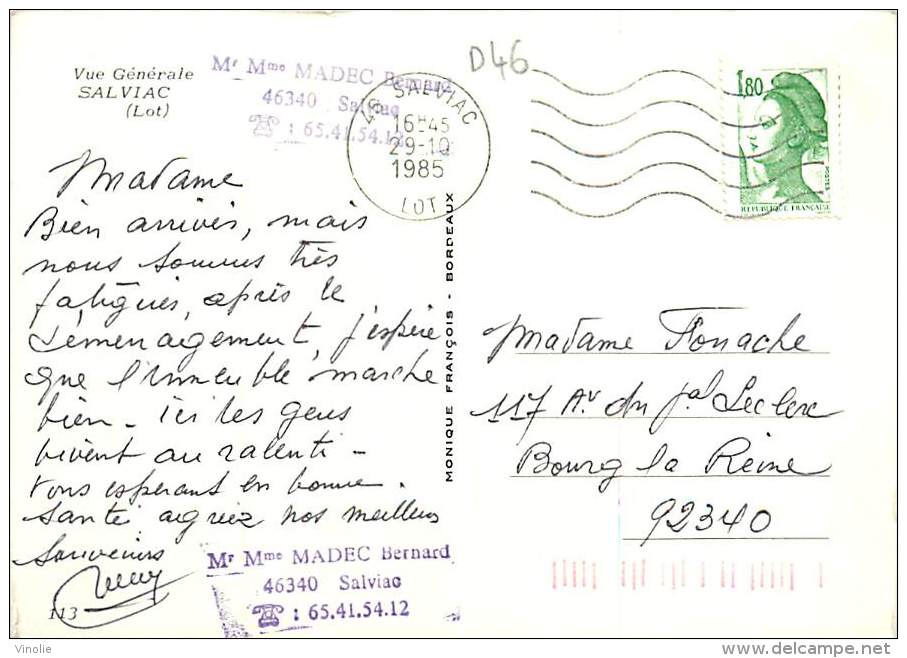 Vue Générale
SALVIAC
(Lot)
Mr Mme MADEC Bernard
46340 Salviac
☎ : 65.41.54.12
D46
46 SALVIAC
16H45
29-10
1985
LOT
1,80
POSTES
REPUBLIQUE FRANÇAISE
Madame
Bien arrivés, mais
nous sommes très
fatigués, après le
déménagement, j'espère
que l'immeuble marche
bien - ici les gens
vivent au ralenti -
vous espérant en bonne
santé agréez nos meilleurs
souvenirs
MONIQUE FRANÇOIS - BORDEAUX
Madame Fouache
117 Av du Gal Leclerc
Bourg la Reine
92340
Mr Mme MADEC Bernard
46340 Salviac
☎ : 65.41.54.12
113
Vinolie
www.delcampe.net